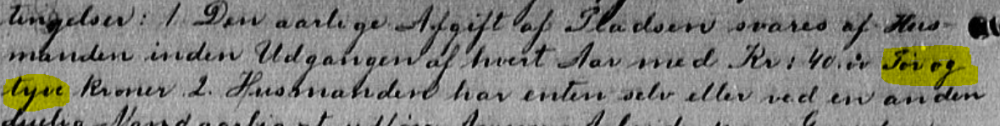 tingelser: 1. Den aarlige Afgift af Pladsen svares af Hus-
manden inden Udgangen af hvert Aar med Kr: 40. Før og
tyve Kroner 2. Husmanden har enten selv eller ved en anden